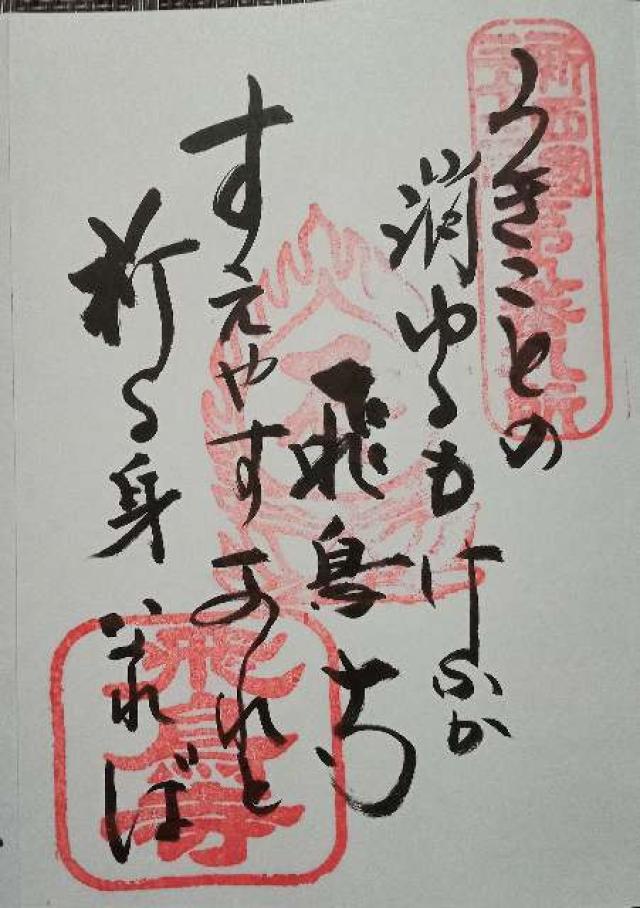 うきことの
消ゆるもけふか
飛鳥寺
すえやすかれと
祈る身なれば
飛鳥寺